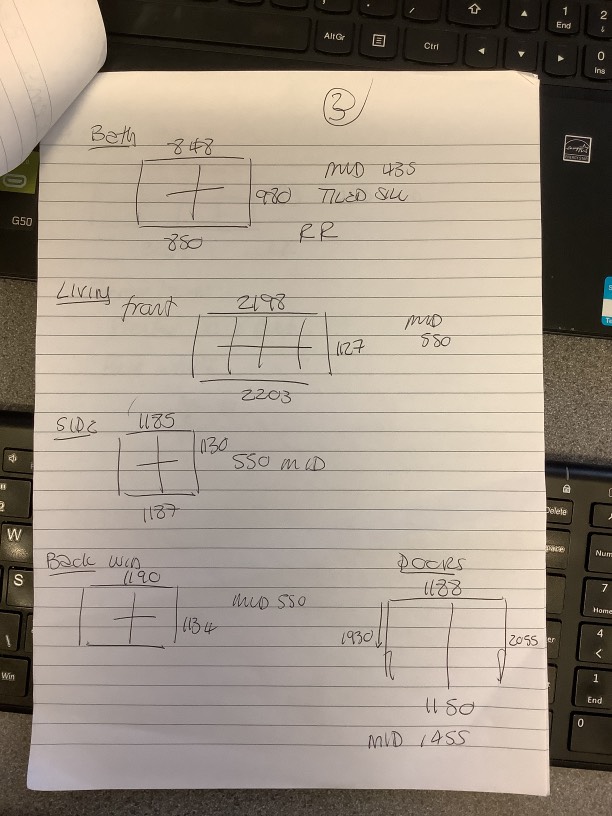 3
Bath
848
980
850
MID 435
TILED SILL
RR
LIVING front
2198
1127
2203
MID
550
SIDE
1185
1130
550 MID
1187
Back WIN
1190
1134
MID 550
DOORS
1188
1930
2055
1180
MID 1455
G50
AltGr
Ctrl
1
End
2
0
Ins
W
S
Win
Delete
7
Home
4
<
1
End
0